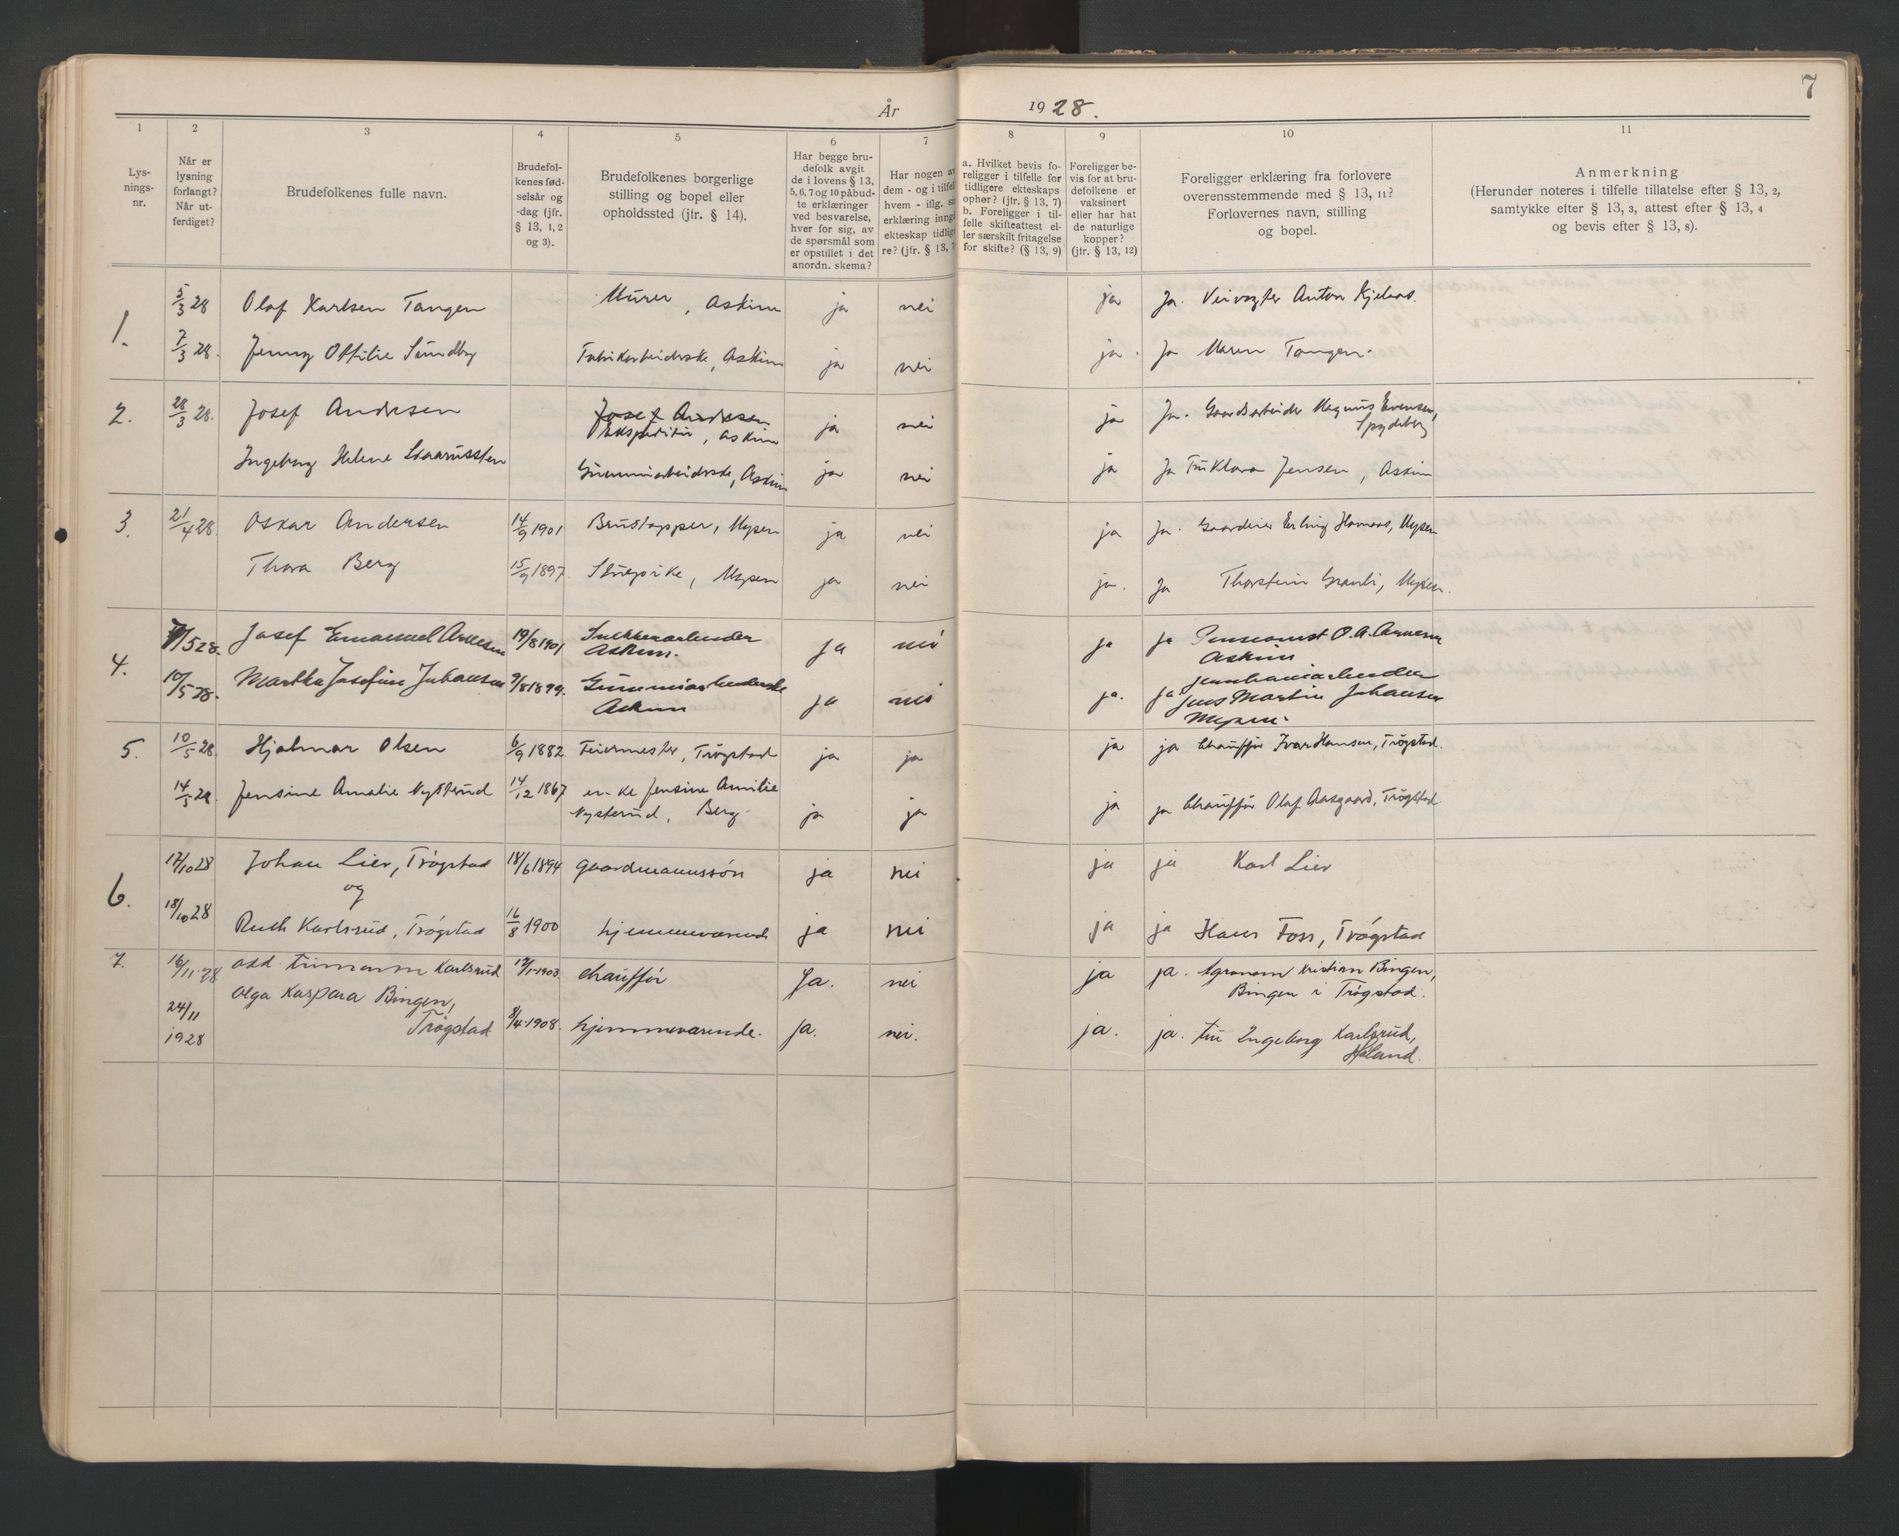 7
År 1928.
1 2 3 4 5 6 7 8 9 10 11
Lys-
nings-
nr.
Når er
lysning
forlangt?
Når ut-
ferdiget?
Brudefolkenes fulle navn.
Brudefol-
kenes fød-
selsår og
-dag (jfr.
§ 13, 1, 2
og 3).
Brudefolkenes borgerlige
stilling og bopel eller
opholdssted (jfr. § 14).
Har begge bru-
defolk avgit
de i lovens § 13,
5, 6, 7 og 10 påbud-
te erklæringer
ved besvarelse,
hver for sig, av
de spørsmål som
er opstillet i det
anordn. skema?
Har nogen av
dem - og i tilfel
hvem - iflg. si
erklæring inng
ekteskap tidlig
re? (jfr. § 13, 7
a. Hvilket bevis fo-
religger i tilfelle for
tidligere ekteskaps
ophør? (jfr. § 13, 7)
b. Foreligger i til-
felle skifteattest el-
ler særskilt fritagelse
for skifte? (§ 13, 9)
Foreligger be-
vis for at bru-
defolkene er
vaksinert
eller har hat
de naturlige
kopper?
(jfr. § 13, 12)
Foreligger erklæring fra forlovere
overensstemmende med § 13, 11?
Forlovernes navn, stilling
og bopel.
Anmerkning
(Herunder noteres i tilfelle tillatelse efter § 13, 2,
samtykke efter § 13, 3, attest efter § 13, 4
og bevis efter § 13, 8).
1. 5/3 28 Olaf Karlsen Tangen Murer, Askim ja nei ja Ja. Veivogter Anton Kjelaas.
7/3 28. Jenny Ottilie Sundby Fabrikarbeiderske, Askim ja nei ja. Ja Maren Tangen.
2. 28/3 28. Josef Andresen Josef Andresen
Ekspeditør, Askim ja nei ja Ja. Gaardsarbeider Magnus Evensen,
Spydeberg
Ingeborg Helene Gummiarbeiderske, Askim ja nei ja Ja Fru Klara Jensen, Askim
3. 21/4 28. Oskar Andersen 14/9 1901 Brustapper, Mysen ja nei ja Ja. Gaardeier Erling Hamaas, Mysen
Thora Berg 15/9 1897. Stuepike, Mysen ja nei ja. Ja Thorstein Granli, Mysen.
4. 9/5 28. Josef Emanuel Arnesen 19/8 1901 Snekkerarbeider
Askim. ja nei ja ja Pensionist O. A. Arnesen
Askim
10/5 28. Martha Josefine Johansen 9/8 1899. Gummiarbeiderske
Askim ja nei ja. ja jernbanearbeider
Jens Martin Johansen
Mysen.
5. 10/5 28. Hjalmar Olsen 6/9 1882 Feiermester, Trøgstad ja ja ja ja Chauffør Ivar Hansen, Trøgstad.
14/5 28. Jensine Amalie Nysterud 14/12 1867 en-ke Jensine Amilie
Nysterud, Berg ja ja ja ja Chauffør Olaf Aasgaard, Trøgstad.
6. 17/10 28 Johan Lier, Trøgstad 18/6 1894 gaardmannssøn ja nei ja ja Karl Lier
og
18/10 28 Ruth Karlsrud, Trøgstad 16/8 1900 hjemmeværende ja nei ja ja Hans Foss, Trøgstad
7. 16/11-28 Odd Karlsrud 17/1-1903 chauffør Ja. nei ja ja. Agronom Kristian Bingen,
Bingen i Trøgstad.
Olga Kaspara Bingen,
24/11
1928 Trøgstad 8/4-1908. hjemmeværende. Ja. nei. ja. ja. fru Ingeborg Karlsrud,
Høland.